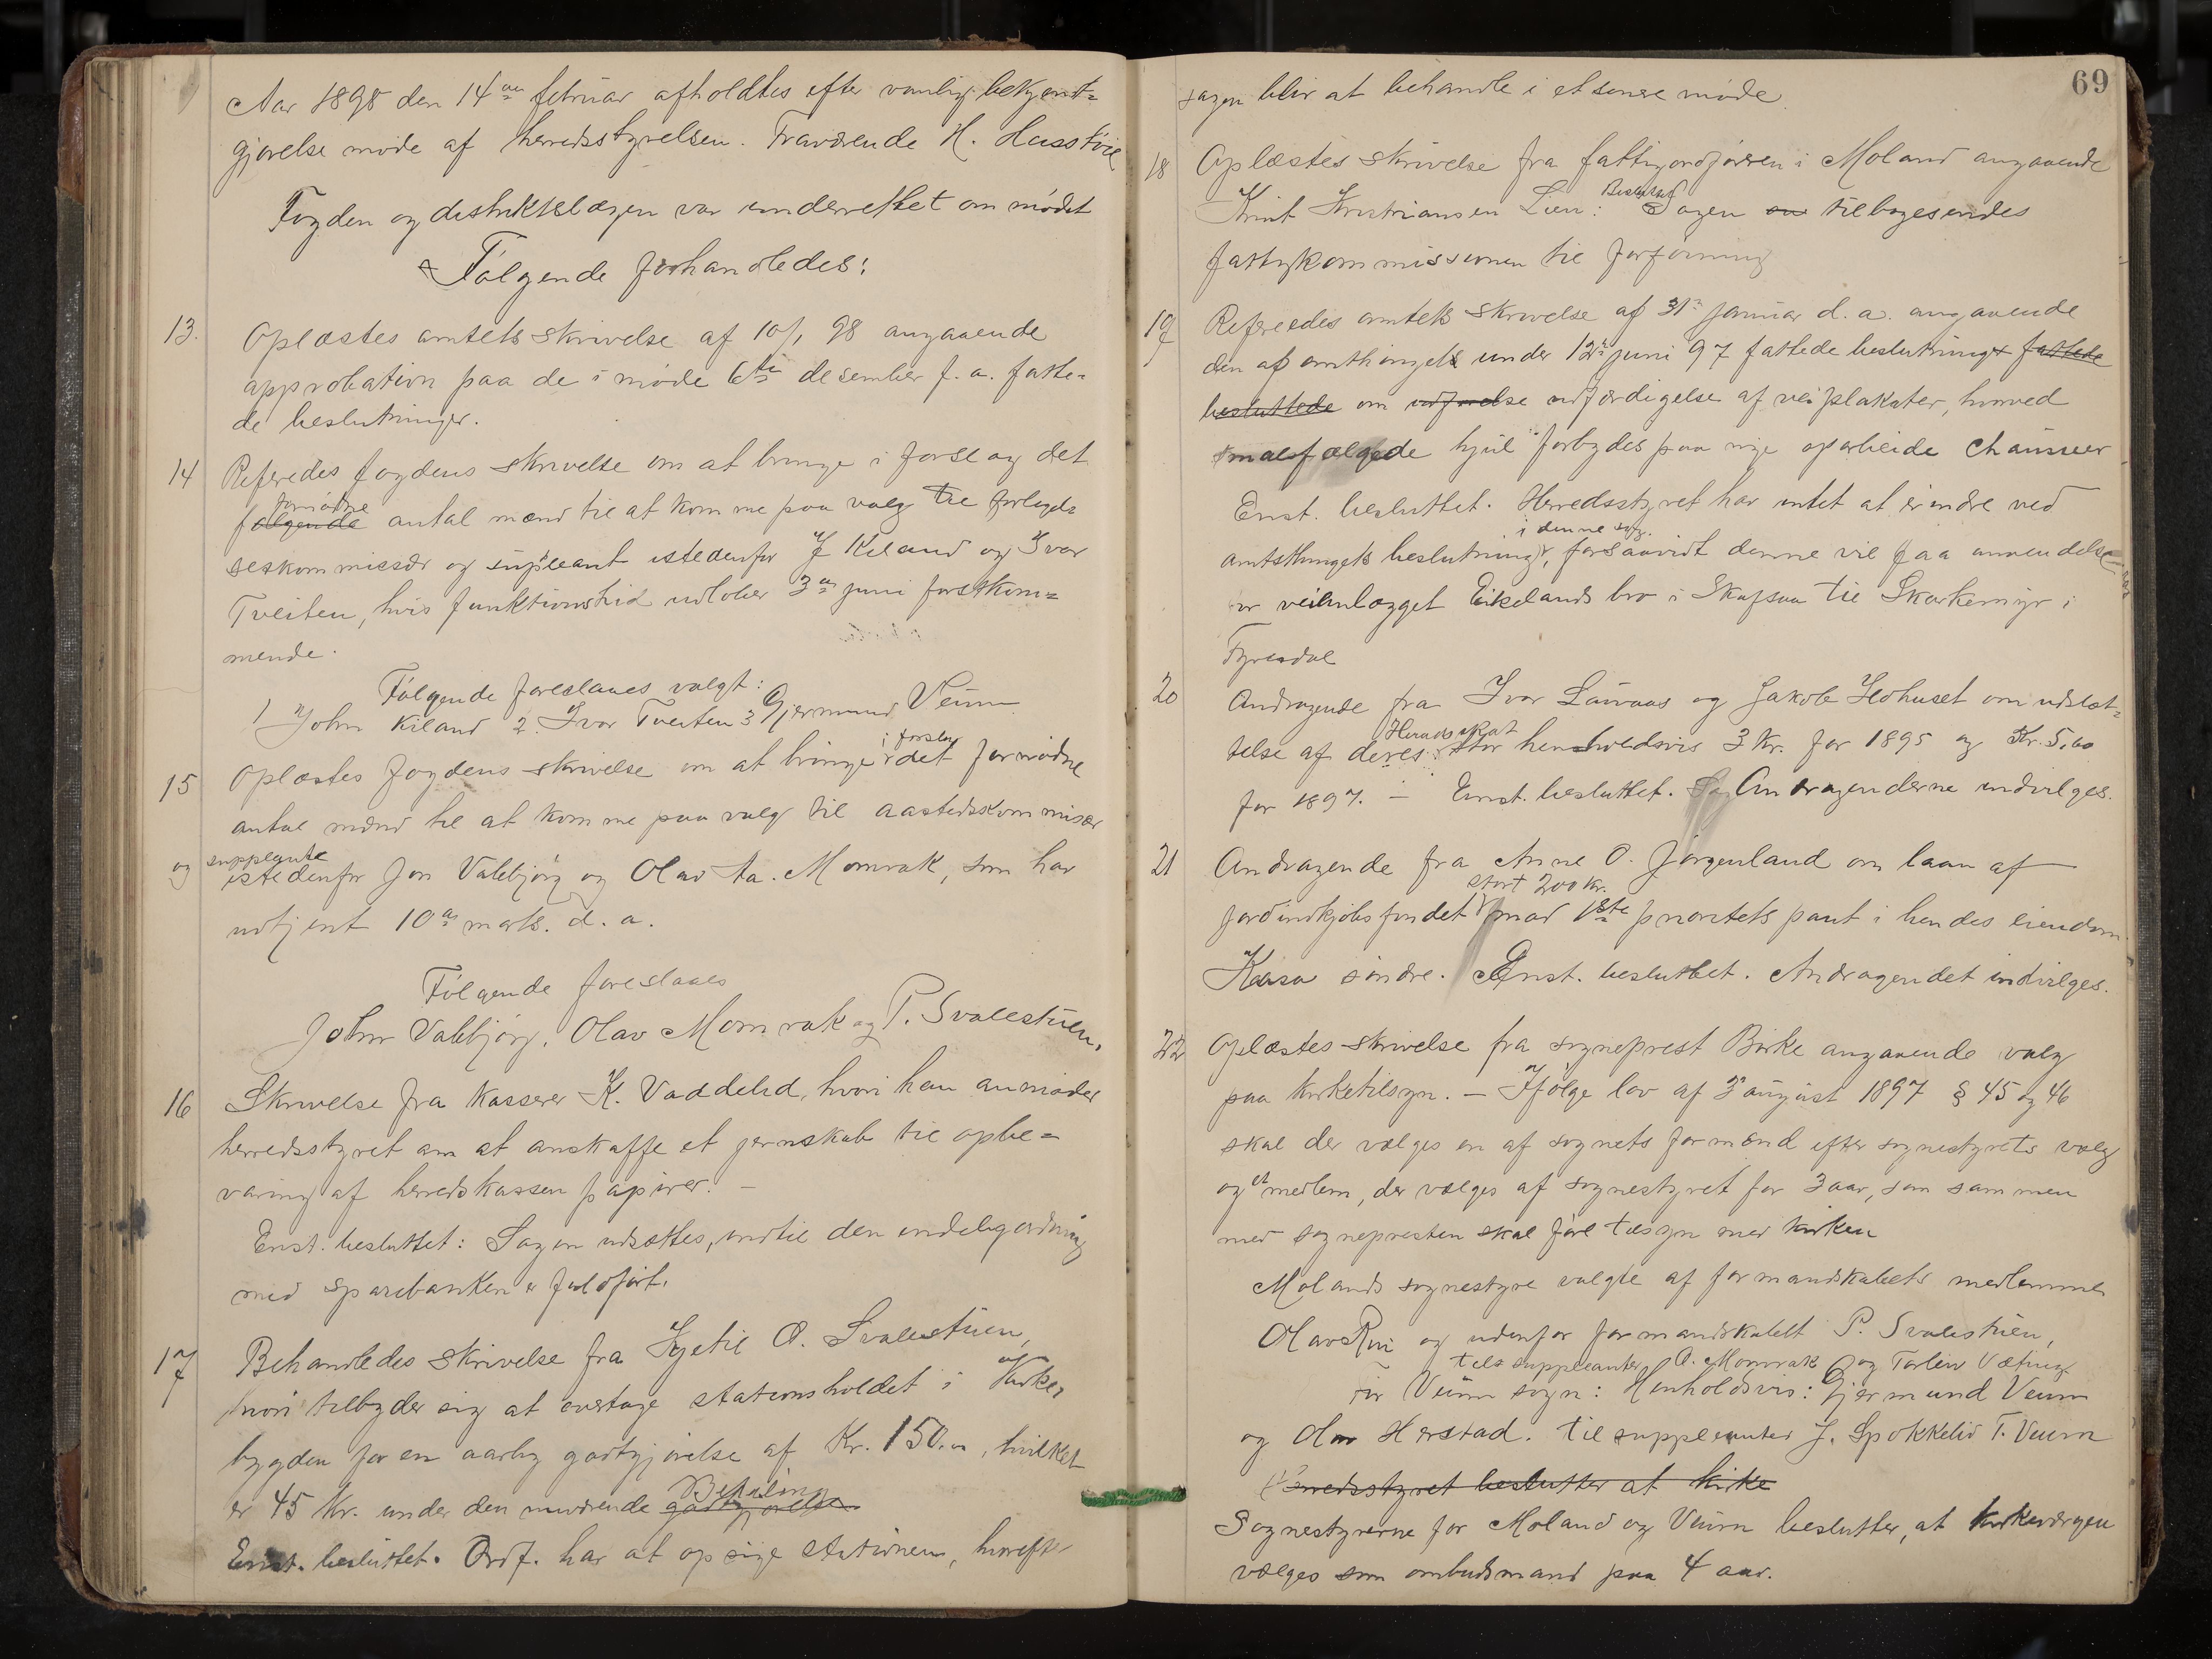 Aar 1898 den 14de februar afholdtes efter vanlig bekjent=
gjørelse møde af herredsstyrelsen. Fraværende H. Husstvie
Fogden og distriktslægen var underrettet om mødet
Følgende forhandledes:
13. Oplæstes amtets skrivelse af 10/1 98 angaaende
approbation paa de i møde 6te desember f. a. fatte-
de beslutninger.
14 Referedes fogdens skrivelse om at bringe i forslag det
fornødne
følgende antal mænd til at komme paa valg til forligel=
seskommissær og supleant istedenfor J Kiland og Ivar
Tveiten, hvis funktionstid udløber 3de juni førstkom=
mende.
Følgende foreslaaes valgt:
1 John Kiland 2. Ivar Tveiten 3 Gjermund Veum
i forslag
15 Oplæstes fogdens skrivelse om at bringe det fornødne
antal mænd til at komme paa valg til aastedskommisær
og suppleante
istedenfor Jon Valebjørg og Olav Aa. Momrak, som har
udtjent 10de marts. d. a.
Følgende foreslaaes
John Valebjørg, Olav Momrak og P. Svalestuen.
16 Skrivelse fra kasserer K. Vaddelid, hvori han anmoder
herredsstyret om at anskaffe et jernskab til opbe=
varing af herredskassen papirer. –
Enst. besluttet: Sagen udsættes, indtil den endelig ordning
med sparebanken er fuldført.
17 Behandledes skrivelse fra Kjetil O. Svalestuen,
hvori tilbyder sig at overtage stationsholdet i Kirke,
bygden for en aarlig godtgjørelse af Kr. 150.00, hvilket
Betaling
er 45 Kr. under den nuværende godtgjørelse.
Enst. besluttet. Ordf. har at opsige Stationen, hvorefter
69
sagen blir at behandle i et senere møde.
18 Oplæstes skrivelse fra fattigordføreren i Moland angaaende
Besluttet
Knut Kristiansen Lien: Sagen tilbagesendes
fattigkommissionen til forføining
19 Refereedes amtets skrivelse af 31te januar d. a. angaaende
den af amthinget under 12te juni 97 fattede beslutninger fattede
besluttede om udførelse udfærdigelse af veiplakater, hvorved
smalfælgede hjul forbydes paa nye oparbeide Chausseer
Enst. besluttet. Herredsstyret har intet at erindre ved
i denne sag.
amtsthingets beslutning, forsaavidt denne vil faa anvendelse
veianlægget Eikelands bro i Skafsaa til Skarkemyr i
Fyresdal
20 Andragende fra Ivar Lauvaas og Jakob Flohuset om udslæt=
Herredsskat
telse af deres for henholdsvis 3 Kr. for 1895 og Kr. 5,60
for 1897. – Enst. besluttet. Andragenderne indvilges.
21 Andragende fra Anne O. Jørgenland om laan af
stort 200 kr.
jordindkjøbsfondet mod 1ste prioritets pant i hendes eiendom
Kasa søndre. Enst. besluttet. Andragendet indvilges.
22 Oplæstes skrivelse fra sogneprest Birke angaaende valg
paa kirketilsyn. – Ifølge lov af 3 august 1897 § 45 og 46
skal der vælges en af sognets formænd efter sognestyrets valg
og et medlem, der vælges af sognestyret for 3 aar, som sammen
med sognepresten skal føre tilsyn med kirken
Molands sognestyre valgte af formandskabets medlemmer
Olav Rui og udenfor formandskabet P. Svalestuen,
til suppleanter A. Momrak og Tarleiv Vætting
for Veum sogn: Henholdsvis: Gjermund Veum
og Olav Herstad. til suppleanter J. Spokkelid T. Veum
Herredsstyret beslutter at kirke
Sognestyrerne for Moland og Veum beslutter, at kirkeværgen
vælges som ombudsmand paa 4 aar.